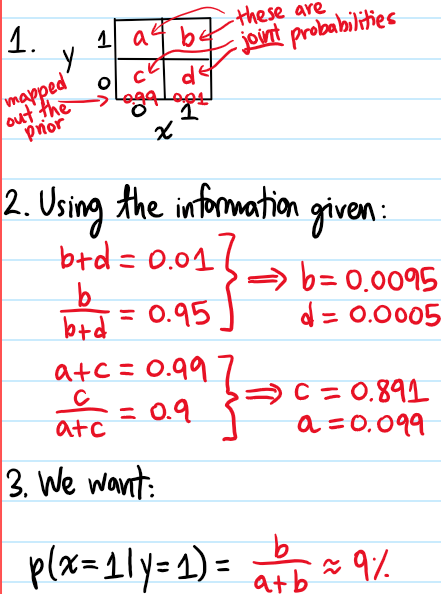 1.
these are
joint probabilities
y 1 a b
0 c d
mapped out the prior
0.99 0.01
0 1
x
2. Using the information given:
b+d = 0.01
b/(b+d) = 0.95
⟹ b = 0.0095
d = 0.0005
a+c = 0.99
c/(a+c) = 0.9
⟹ c = 0.891
a = 0.099
3. We want:
p(x=1|y=1) = b/(a+b) ≈ 9%